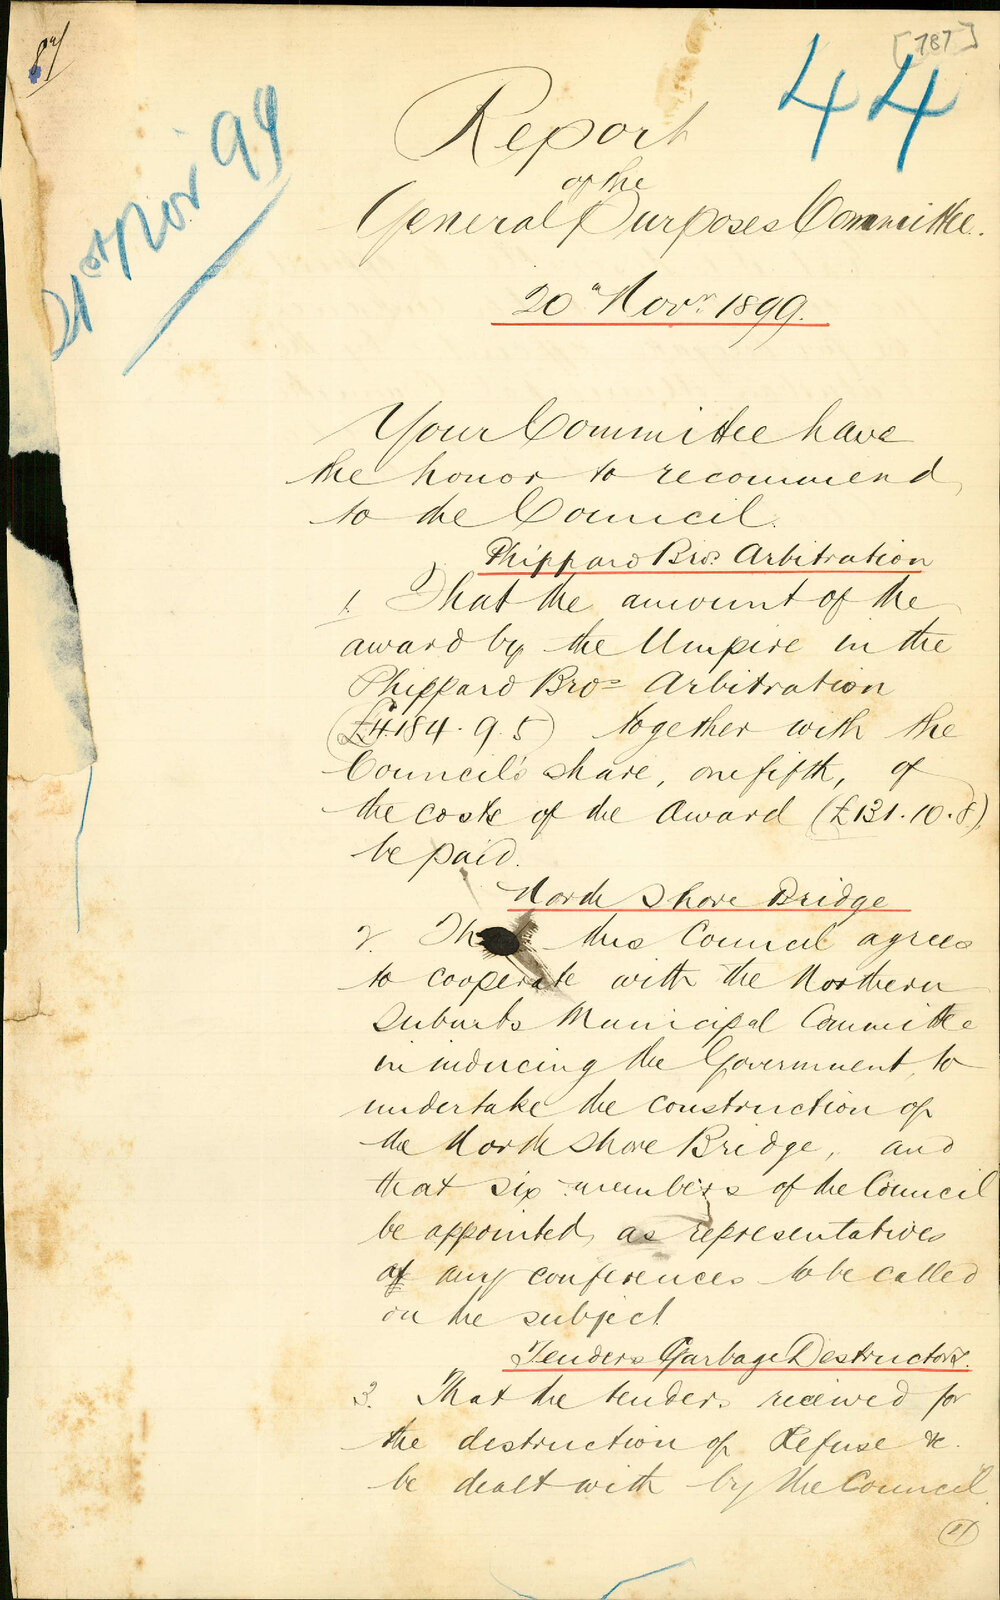 [787]
44
21st Nov 99
Report
of the
General Purposes Committee.
20th Novr 1899.
Your Committee have
the honor to recommend
to the Council.
Phippard Bros. Arbitration
1. That the amount of the
award by the Umpire in the
Phippard Bros Arbitration
(£4184.9.5) together with the
Council's share, one fifth, of
the costs of the Award (£131.10.8)
be paid.
North Shore Bridge
2. That this Council agrees
to cooperate with the Northern
Suburbs Municipal Committee
in inducing the Government to
undertake the construction of
the North Shore Bridge, and
that six members of the Council
be appointed as representatives
at any conferences to be called
on the subject
Tenders Garbage Destructors.
3. That the tenders received for
the destruction of Refuse &c.
be dealt with by the Council